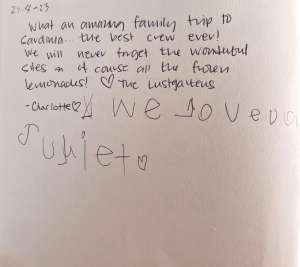 27-8-23
What an amazing family trip to
Sardinia... the best crew ever!
We will never forget the wonderful
sites & of course all the frozen
lemonades! ♡ The Lustgartens
-Charlotte♡ We love
Juliet♡